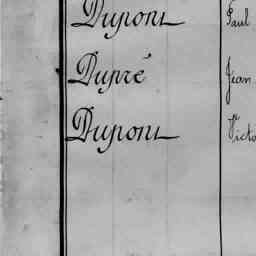 Dupont Paul
Dupré Jean
Dupont Victo